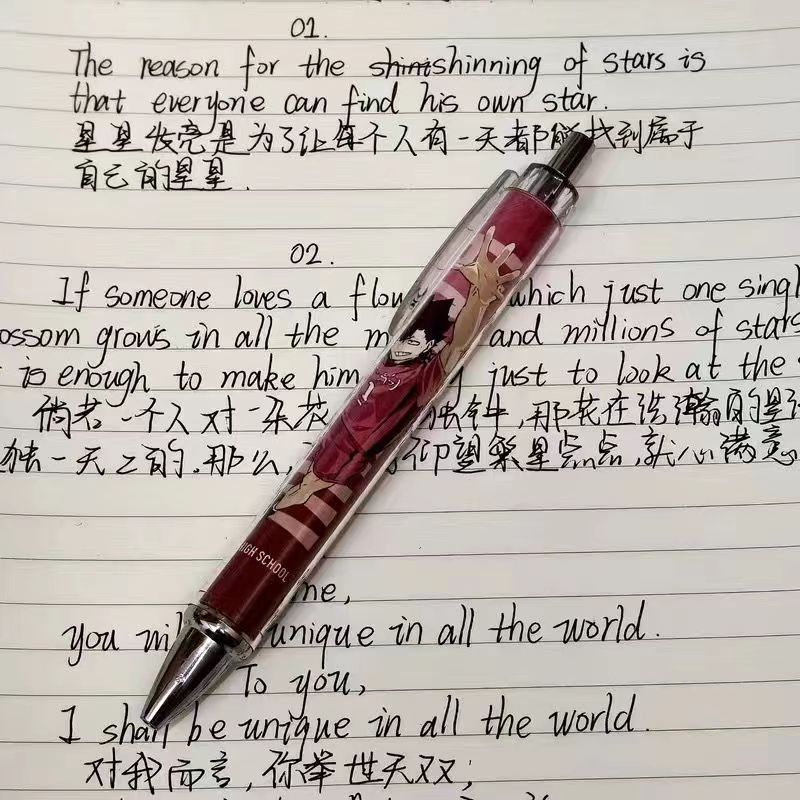 01.
The reason for the shinning of stars is
that everyone can find his own star.
星星发亮是为了让每个人有一天都能找到属于
自己的星星.
02.
If someone loves a flow which just one singl
ossom grows in all the m and millions of stars
is enough to make him just to look at the
倘若一个人对一朵花 独钟,那花在浩瀚的星
独一天二的.那么, 仰望繁星点点,就心满意
HIGH SCHOOL
me,
you unique in all the world.
To you,
I shall be unique in all the world.
对我而言,你举世无双;